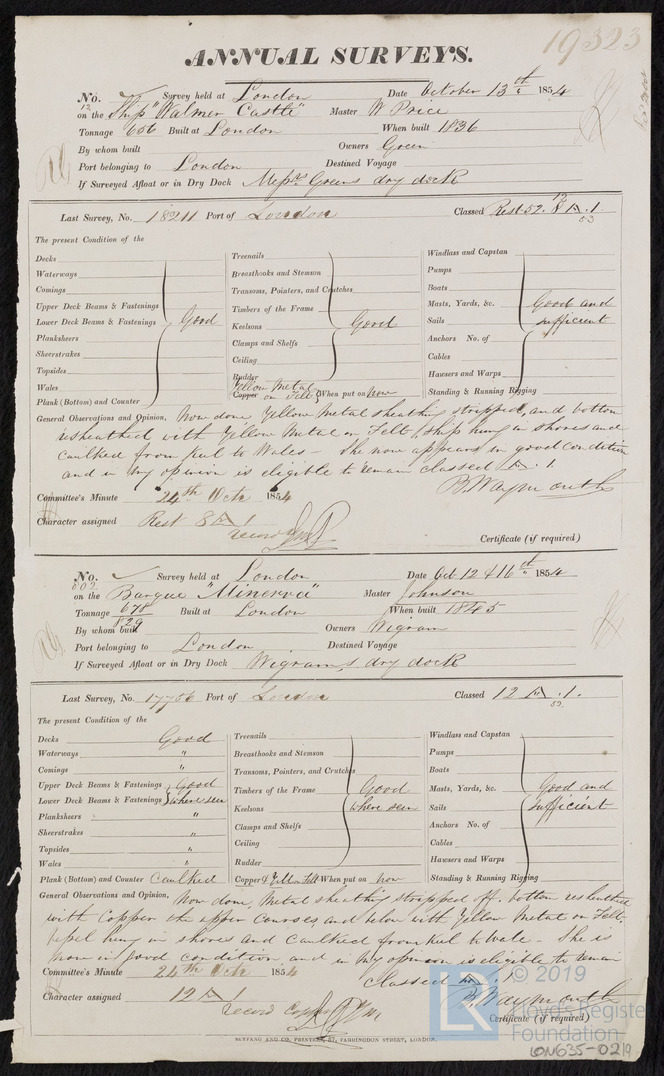 19323
ANNUAL SURVEYS.
No. Survey held at London Date October 13th 1854
on the Ship "Walmer Castle" Master W Price
Tonnage 656 Built at London When built 1836
By whom built Owners Green
Port belonging to London Destined Voyage
If Surveyed Afloat or in Dry Dock Messrs Greens dry dock
Last Survey, No. 18211 Port of London Classed Rest 52. 8 A.1.
53
The present Condition of the
Decks
Waterways
Comings
Upper Deck Beams & Fastenings
Lower Deck Beams & Fastenings Good
Planksheers
Sheerstrakes
Topsides
Wales
Plank (Bottom) and Counter
Treenails
Breasthooks and Stemson
Transoms, Pointers, and Crutches
Timbers of the Frame
Keelsons Good
Clamps and Shelfs
Ceiling
Rudder
Yellow Metal
Copper on Felt When put on now
Windlass and Capstan
Pumps
Boats
Masts, Yards, &c. Good and
Sails sufficient
Anchors No. of
Cables
Hawsers and Warps
Standing & Running Rigging
General Observations and Opinion, Now done, Yellow Metal sheathing stripped, and bottom
resheathed with Yellow Metal on Felt, ship hung in shores and
caulked from Keel to Wales - She now appears in good condition
and in my opinion is eligible to remain classed A.1
B. Waymouth
Committee's Minute 24th Octr 1854
Character assigned Rest 8 A 1
record
Certificate (if required)
No. Survey held at London Date Oct 12 & 16th 1854
on the Barque "Minerva" Master Johnson
Tonnage 678 Built at London When built 1845
829
By whom built Owners Wigram
Port belonging to London Destined Voyage
If Surveyed Afloat or in Dry Dock Wigram's dry dock
Last Survey, No. 17756 Port of London Classed 12 A.1.
52
The present Condition of the
Decks Good
Waterways "
Comings "
Upper Deck Beams & Fastenings Good
Lower Deck Beams & Fastenings where seen
Planksheers "
Sheerstrakes "
Topsides "
Wales "
Plank (Bottom) and Counter Caulked
Treenails
Breasthooks and Stemson
Transoms, Pointers, and Crutches
Timbers of the Frame Good
Keelsons where seen
Clamps and Shelfs
Ceiling
Rudder
Copper & Yell on Felt When put on now
Windlass and Capstan
Pumps
Boats
Masts, Yards, &c. Good and
Sails sufficient
Anchors No. of
Cables
Hawsers and Warps
Standing & Running Rigging
General Observations and Opinion, Now done, Metal sheathing stripped off, bottom resheathed
with Copper the upper Courses, and below with Yellow Metal on Felt,
vessel hung in shores and Caulked from Keel to Wale - She is
now in good condition, and in my opinion is eligible to remain
classed A.1.
Committee's Minute 24th Octr 1854
B. Waymouth
Character assigned 12 A 1
record
Certificate (if required)
SEYFANG AND CO. PRINTERS, 57, FARRINGDON STREET, LONDON.
LR © 2019
Lloyd's Register
Foundation
LON635-0219